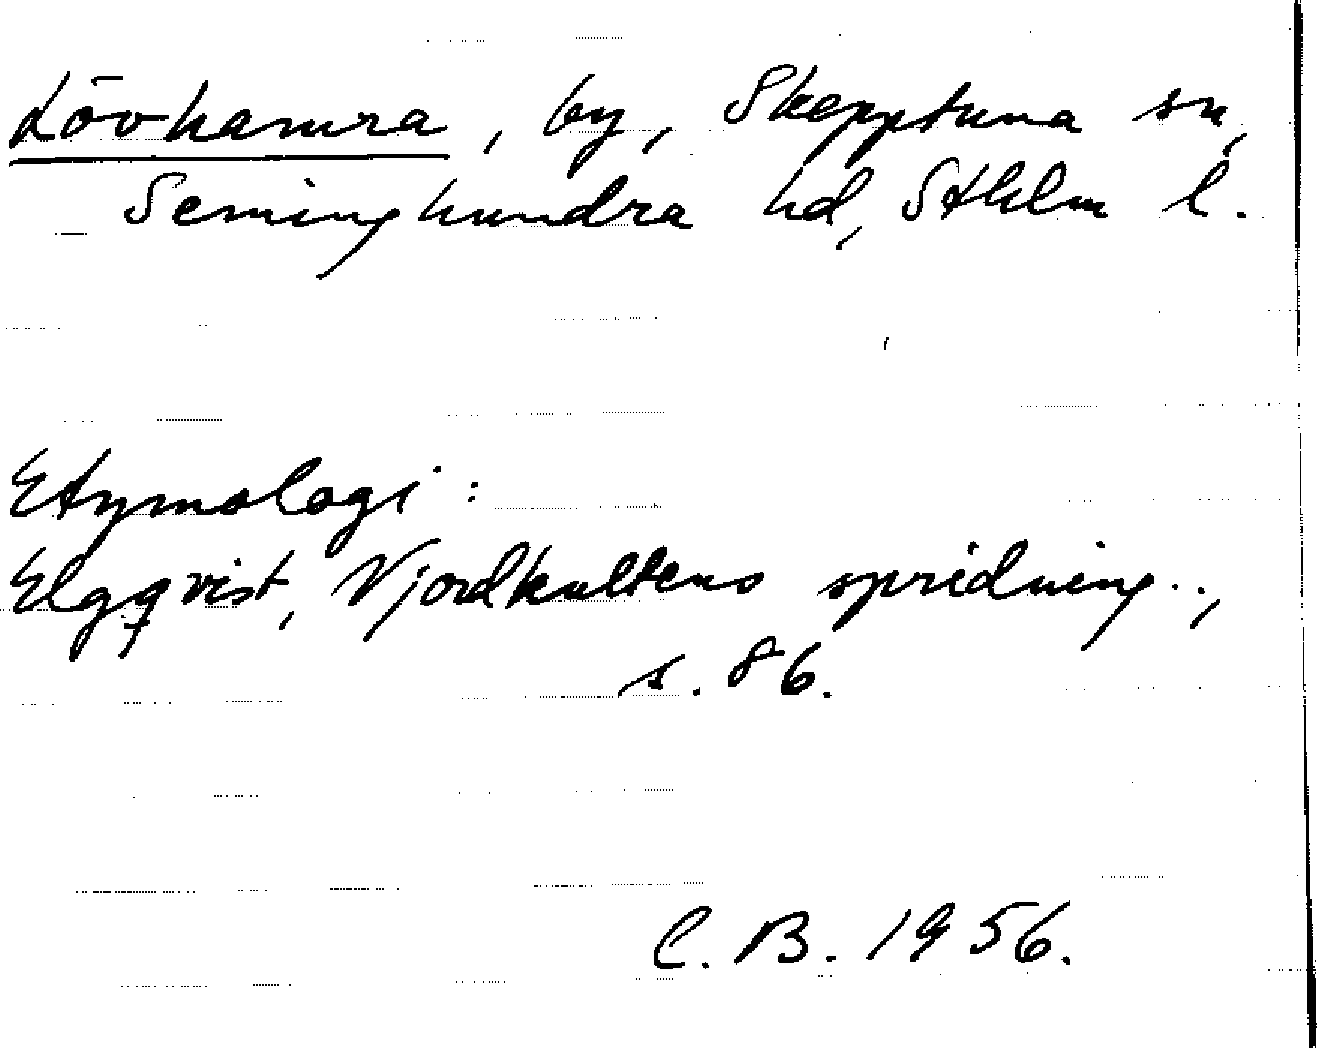 Lövhamra, by, Skepptuna sn,
Seminghundra hd, Sthlm l.
Etymologi:
Elgqvist, Njordkultens spridning..,
s. 86.
C. B. 1956.